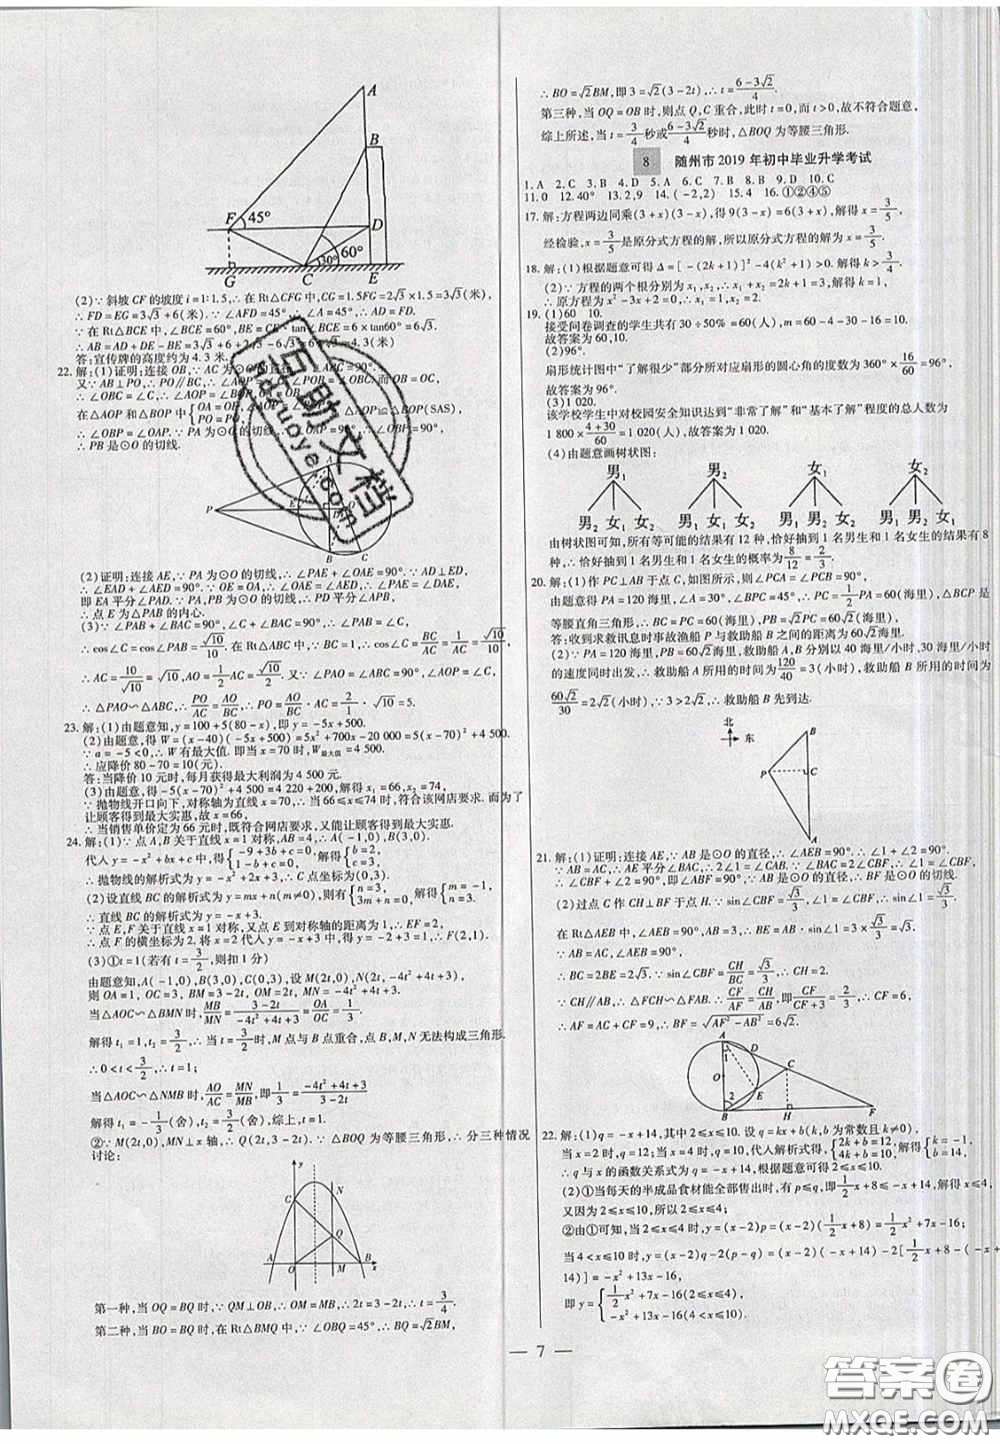 A
B
F 45° D
G C 30° 60° E
(2)∵斜坡 CF 的坡度 i=1:1.5,∴在 Rt△CFG 中,CG=1.5FG=2√3×1.5=3√3(米),
∴FD=EG=3√3+6(米).∵∠AFD=45°,∴AD=FD=3√3+6(米).
∴在 Rt△BCE 中,∠BCE=60°,BE=CE·tan∠BCE=6×tan60°=6√3(米)
∴AB=AD+DE-BE=3√3+6+2√3-6√3=6-√3≈4.3(米)
答:宣传牌的高度约为 4.3 米.
22.解:(1)证明:连接 OB,∵AC 为⊙O 的直径
又∵AB⊥PO,∴PO∥BC,∴∠AOP=∠POB=∠OBC.而 OB=OC,
∴∠OBC=∠C,∴∠AOP=∠POB.
在△AOP 和△BOP 中{OA=OB, PO=PO, △AOP≌△BOP(SAS),
∴∠OBP=∠OAP.∵ ∠OAP=90°,∴∠OBP=90°,
∴PB 是⊙O 的切线.
P E A D O B C
(2)证明:连接 AE,∵PA 为⊙O 的切线,∴∠PAE+∠OAE=90°.∵AD⊥ED,
∴∠EAD+∠AED=90°.∵OE=OA,∴∠OAE=∠AED,∴∠PAE=∠DAE,
即 EA 平分∠PAD.∵PA、PB 为⊙O 的切线,∴PD 平分∠APB,
∴点 E 为△PAB 的内心.
(3)∵∠PAB+∠BAC=90°,∠C+∠BAC=90°,∴∠PAB=∠C,
∴cos∠C=cos∠PAB=√10/10.在 Rt△ABC 中,cos∠C=BC/AC=1/AC=√10/10,
∴AC=√10,AO=√10/2.∵∠PAO=∠ABC=90°,∠POA=∠C,
∴△PAO∽△ABC,∴PO/AC=AO/BC,∴PO=AO/BC·AC=√10/2/1·√10=5.
23.解:(1)由题意知,y=100+5(80-x),即 y=-5x+500.
(2)由题意,得 W=(x-40)(-5x+500)=-5x²+700x-20 000=-5(x-70)²+4 500.
∵a=-5<0,∴W 有最大值.即当 x=70 时,W最大值=4 500.
∴应降价 80-70=10(元).
答:当降价 10 元时,每月获得最大利润为 4 500 元.
(3)由题意,得 -5(x-70)²+4500=4220+200,解得 x₁=66,x₂=74.
∵抛物线开口向下,对称轴为直线 x=70,∴当 66⩽x⩽74 时,符合该网店要求.而为了
让顾客得到最大实惠,故 x=66,
∴当销售单价定为 66 元时,既符合网店要求,又能让顾客得到最大实惠.
24.解:(1)∵点 A,B 关于直线 x=1 对称,AB=4,∴A(-1,0),B(3,0).
代入 y=-x²+bx+c 中,得{-9+3b+c=0, -1-b+c=0,解得{b=2, c=3,
∴抛物线的解析式为 y=-x²+2x+3,∴C 点坐标为(0,3).
(2)设直线 BC 的解析式为 y=mx+n(m≠0),则有{n=3, 3m+n=0,解得{m=-1, n=3,
∴直线 BC 的解析式为 y=-x+3.
∵点 E,F 关于直线 x=1 对称,又点 E 到对称轴的距离为 1,∴EF=2,
∴点 F 的横坐标为 2.将 x=2 代入 y=-x+3 中,得 y=-2+3=1,∴F(2,1).
(3)①t=1(若有 t=3/2,则扣 1 分)
由题意知,A(-1,0),B(3,0),C(0,3),设 M(2t,0),N(2t,-4t²+4t+3),
则 OA=1,OC=3,BM=3-2t,OM=2t,MN=-4t²+4t+3,
当△AOC∽△BMN 时,MB/MN=3-2t/-4t²+4t+3=OA/OC=1/3,
解得 t₁=1,t₂=3/2,∴当 t=3/2 时,M 点与 B 点重合,点 B,M,N 无法构成三角形.
∴0<t<3/2,∴t=1;
当△AOC∽△NMB 时,AO/AC=MN/MB,即 1/3=-4t²+4t+3/3-2t
解得 t₁=-1/3(舍),t₂=3/2(舍),综上,t=1.
②∵M(2t,0),MN⊥x 轴,∴Q(2t,3-2t).∵△BOQ 为等腰三角形,∴分三种情况
讨论:
y
C N
Q
A O M B x
第一种,当 OQ=BQ 时,∵QM⊥OB,∴OM=MB,∴2t=3-2t,∴t=3/4.
第二种,当 BO=BQ 时,在 Rt△BMQ 中,∵∠OBQ=45°,∴BQ=√2BM,
∴BO=√2BM,即 3=√2(3-2t),∴t=6-3√2/4.
第三种,当 OQ=OB 时,则点 Q,C 重合,此时 t=0,而 t>0,故不符合题意,
综上所述,当 t=3/4秒或6-3√2/4秒时,△BOQ 为等腰三角形.
8 随州市 2019 年初中毕业升学考试
1.A 2.C 3.B 4.D 5.A 6.C 7.B 8.D 9.D 10.C
11.0 12.40° 13.2,9 14.(-2,2) 15.4 16.①②④⑤
17.解:方程两边同乘(3+x)(3-x),得 9(3-x)=6(3+x),解得 x=3/5,
经检验,x=3/5是原分式方程的解,所以原分式方程的解为 x=3/5.
18.解:(1)根据题意可得 Δ=[-(2k+1)]²-4(k²+1)>0,解得 k>3/4.
(2)∵方程的两个根分别为 x₁,x₂,∴x₁+x₂=2k+1=3,解得 k=1,
∴原方程为 x²-3x+2=0,∴x₁=1,x₂=2.
19.(1)60 10.
接受问卷调查的学生共有 30÷50%=60(人),m=60-4-30-16=10.
故答案为 60,10.
(2)96°.
扇形统计图中“了解很少”部分所对应扇形的圆心角的度数为 360°×16/60=96°,
故答案为 96°.
(3)1 020.
该学校学生中对校园安全知识达到“非常了解”和“基本了解”程度的总人数为
1 800×4+30/60=1 020(人),故答案为 1 020.
(4)由题意画树状图:
男₁ 男₂ 女₁ 女₂
男₂ 女₁ 女₂ 男₁ 女₁ 女₂ 男₁ 男₂ 女₂ 男₁ 男₂ 女₁
由树状图可知,所有等可能的结果有 12 种,恰好抽到 1 名男生和 1 名女生的结果有 8
种,∴恰好抽到 1 名男生和 1 名女生的概率为8/12=2/3.
20.解:(1)作 PC⊥AB 于点 C,如图所示,则∠PCA=∠PCB=90°,
由题意得 PA=120 海里,∠A=30°,∠BPC=45°,∴PC=1/2PA=60(海里),△BCP 是
等腰直角三角形,∴BC=PC=60(海里),PB=√2PC=60√2(海里).
答:收到求救讯息时事故渔船 P 与救助船 B 之间的距离为 60√2海里.
(2)∵PA=120 海里,PB=60√2海里,救助船 A,B 分别以 40 海里/小时,30 海里/小时
的速度同时出发,∴救助船 A 所用的时间为120/40=3(小时),救助船 B 所用的时间为
60√2/30=2√2(小时),∵3>2√2,∴救助船 B 先到达.
北
东
B
P C
A
21.解:(1)证明:连接 AE,∵AB 是⊙O 的直径,∴∠AEB=90°,∴∠1+∠2=90°.
∵AB=AC,∴AE 平分∠CAB,∴2∠1=∠CAB.∵∠BAC=2∠CBF,∴∠1=∠CBF,
∴∠CBF+∠2=90°,即∠ABF=90°.∵AB 是⊙O 的直径,∴BF 是⊙O 的切线.
(2)过点 C 作 CH⊥BF 于点 H.∵sin∠CBF=√3/3,∠1=∠CBF,∴sin∠1=√3/3.
在 Rt△AEB 中,∠AEB=90°,AB=3,∴BE=AB·sin∠1=3×√3/3=√3.
∵AB=AC,∠AEB=90°,
∴BC=2BE=2√3.∵sin∠CBF=CH/BC=√3/3,∴CH=2.
∵CH∥AB,∴△FCH∽△FAB,∴CF/AF=CH/AB,即CF/CF+3=2/3,∴CF=6,
∴AF=AC+CF=9,∴BF=√AF²-AB²=6√2.
A D 1 O E C 2 B H F
22.解:(1)q=-x+14,其中 2⩽x⩽10.设 q=kx+b(k,b 为常数且 k≠0),
当 x=2 时,q=12;当 x=4 时,q=10,代入解析式得{2k+b=12, 4k+b=10,解得{k=-1, b=14,
∴q 与 x 的函数关系式为 q=-x+14,根据题意可得 2⩽x⩽10.
(2)①当每天的半成品食材能全部售出时,有 p⩽q,即1/2x+8⩽-x+14,解得 x⩽4,
又因为 2⩽x⩽10,所以 2⩽x⩽4.
②由①可知,当 2⩽x⩽4 时,y=(x-2)p=(x-2)(1/2x+8)=1/2x²+7x-16;
当 4<x⩽10 时,y=(x-2)q-2(p-q)=(x-2)(-x+14)-2[1/2x+8-(-x+
14)]=-x²+13x-16.
即 y={1/2x²+7x-16(2⩽x⩽4),
-x²+13x-16(4<x⩽10).
— 7 —
答案圈
MXQE.COM